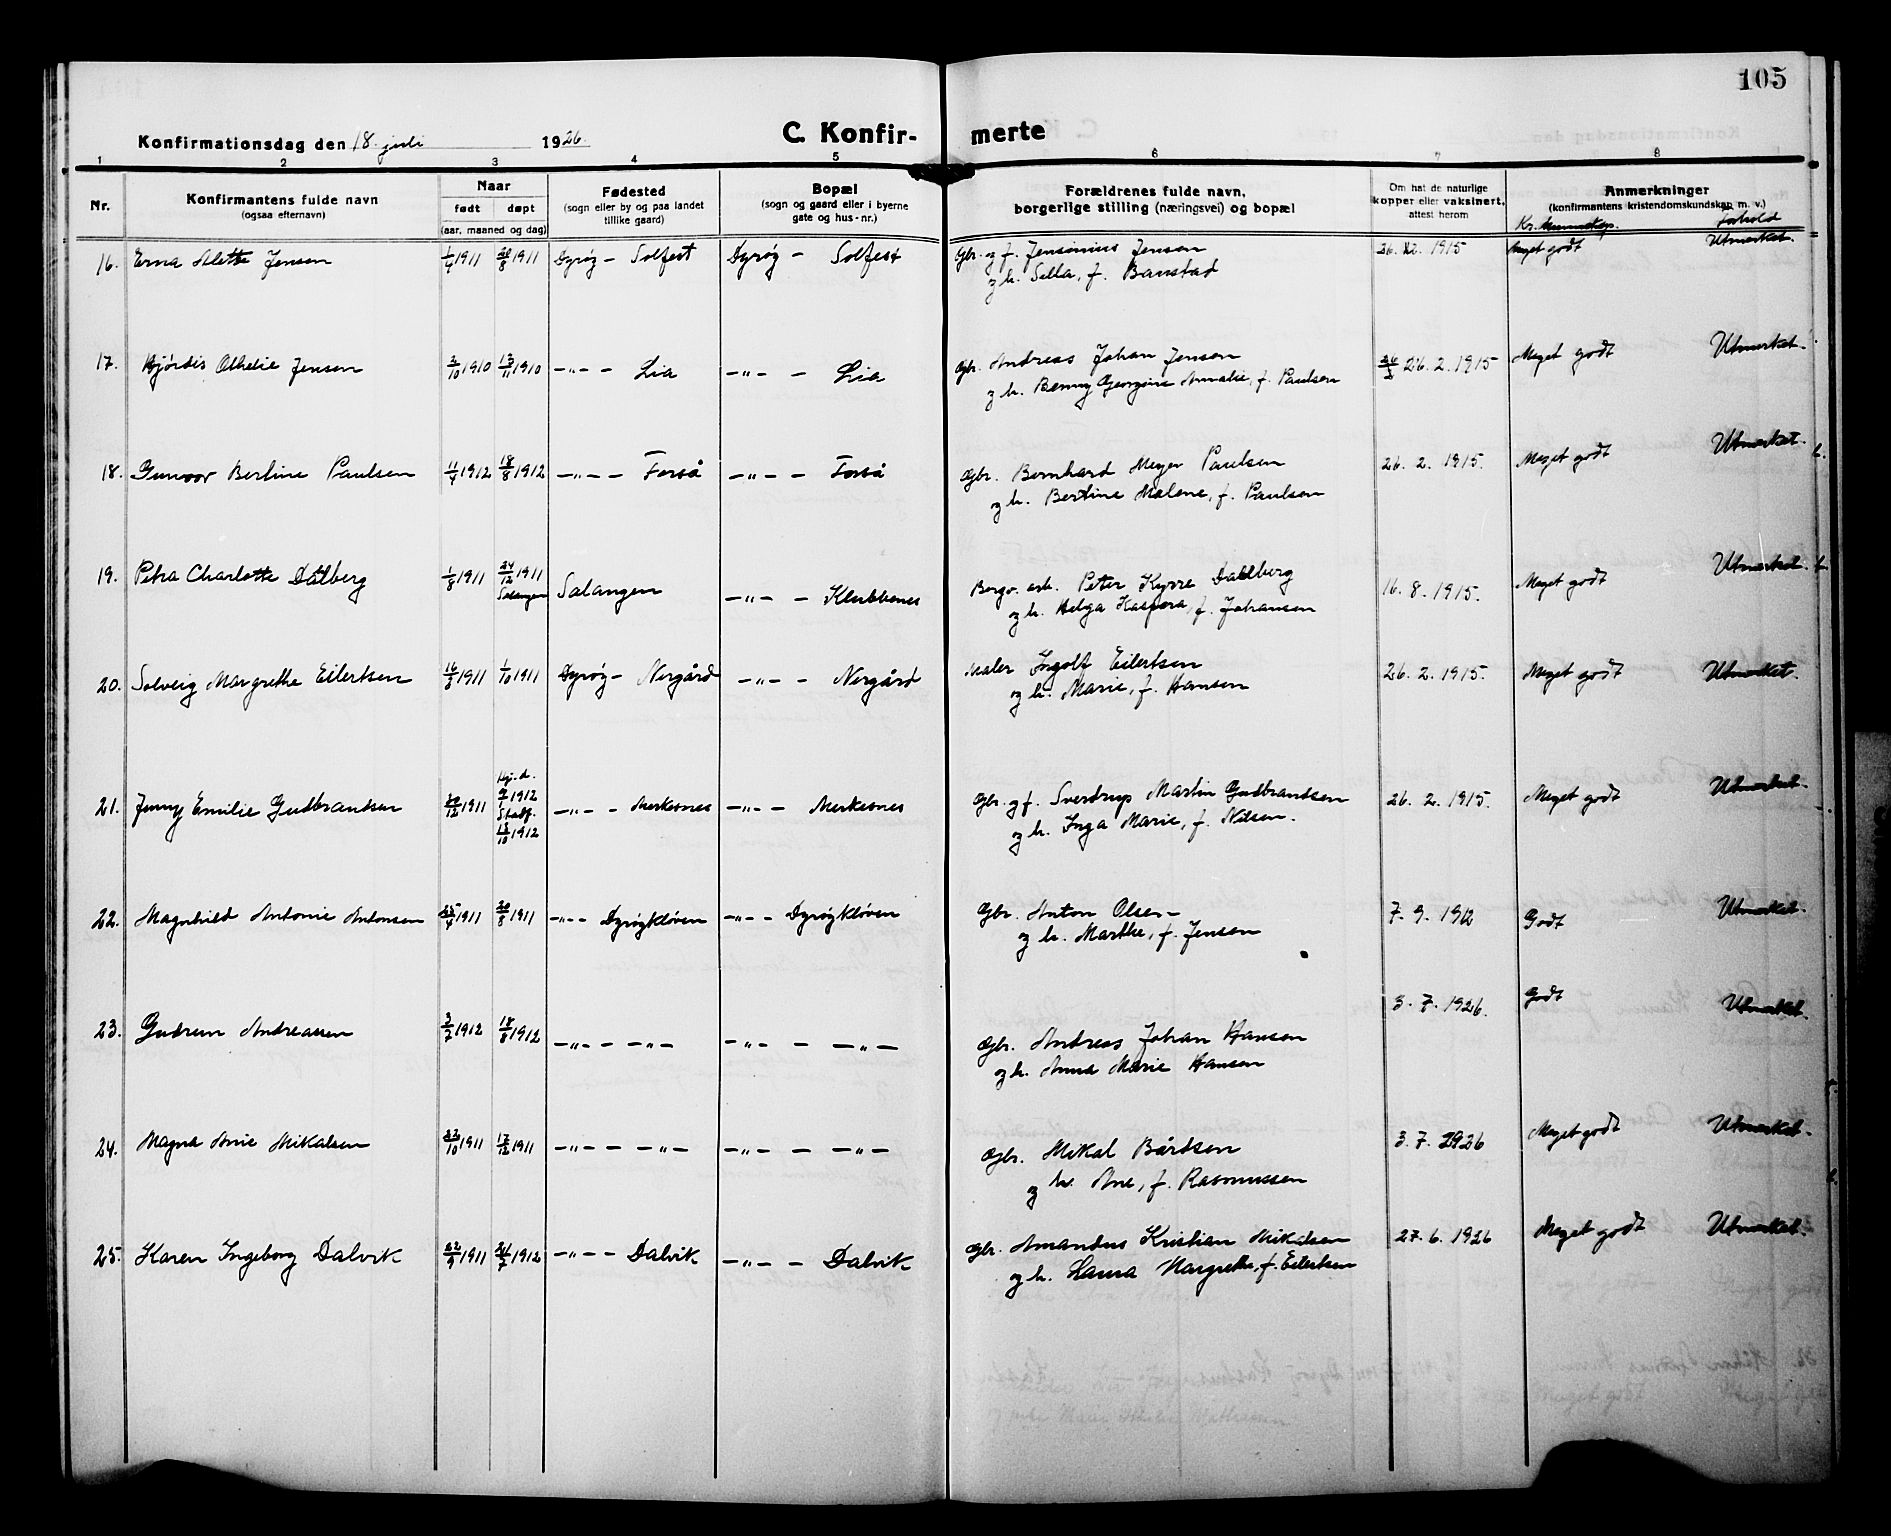 105
Konfirmationsdag den 18. juli 1926. C. Konfir- merte
1 2 3 4 5 6 7 8
Nr. Konfirmantens fulde navn (ogsaa efternavn) Naar født døpt (aar, maaned og dag) Fødested (sogn eller by og paa landet tillike gaard) Bopæl (sogn og gaard eller i byerne gate og hus-nr.) Forældrenes fulde navn, borgerlige stilling (næringsvei) og bopæl Om hat de naturlige kopper eller vaksinert, attest herom Anmerkninger (konfirmantens kristendomskundskap m. v.)
Kr. kunnskap. forhold
16. Erna Alette Jensen 1/4 1911 20/8 1911 Dyrøy - Solfest Dyrøy - Solfest Gbr. og f. Jensinius Jensen 26. 2. 1915 Meget godt Utmerket.
og h. Sella, f. Banstad
17. Hjørdis Othelie Jensen 2/10 1910 13/11 1910 -"- - Lia -"- - Lia Gbr. Andreas Johan Jensen 26. 2. 1915 Meget godt Utmerket.
og h. Benny Georgine Amalie, f. Paulsen
18. Gunvor Bertine Paulsen 11/4 1912 18/8 1912 -"- - Forså -"- - Forså Gbr. Bernhard Meyer Paulsen 26. 2. 1915. Meget godt Utmerket.
og h. Bertine Malene, f. Paulsen
19. Petra Charlotte Dalberg 1/8 1911 24/12 1911 Salangen Salangen -"- - Klubbenes Bergv. arb. Peter Kyrre Dahlberg 16. 8. 1915. Meget godt Utmerket.
og h. Helga Kaspara, f. Johansen
20. Solveig Margrethe Eilertsen 16/8 1911 1/10 1911 Dyrøy - Nergård -"- - Nergård Maler Ingolf Eilertsen 26. 2. 1915. Meget godt Utmerket.
og h. Marie, f. Hansen
21. Jenny Emilie Gudbrandsen 29/12 1911 Hj. d. 2/1 1912 Stadf. 13/10 1912 -"- - Merkesnes -"- - Merkesnes Gbr. og f. Sverdrup Martin Gudbrandsen 26. 2. 1915. Meget godt Utmerket.
og h. Inga Marie, f. Nilsen.
22. Magnhild Antonie Antonsen 25/4 1911 20/8 1911 -"- - Dyrøykløven -"- - Dyrøykløven Gbr. Anton Olsen 7. 9. 1912 Godt Utmerket.
og h. Marthe, f. Jensen
23. Gudrun Andreassen 3/7 1912 18/8 1912 -"- - -"- -"- - -"- Gbr. Andreas Johan Hansen 3. 7. 1926. Godt Utmerket.
og h. Anna Marie Hansen
24. Magna Anie Mikalsen 22/10 1911 17/12 1911 -"- - -"- -"- - -"- Gbr. Mikal Bårdsen 3. 7. 1926 Meget godt Utmerket.
og h. Ane, f. Rasmussen
25. Karen Ingeborg Dalvik 22/9 1911 21/7 1912 -"- - Dalvik -"- - Dalvik Gbr. Amandus Kristian Mikalsen 27. 6. 1926 Meget godt Utmerket.
og h. Laura Margrethe, f. Eilertsen